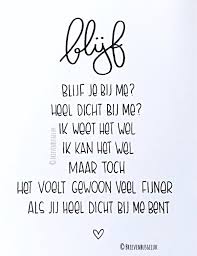 blijf
BLIJF JE BIJ ME?
HEEL DICHT BIJ ME?
IK WEET HET WEL
IK KAN HET WEL
MAAR TOCH
HET VOELT GEWOON VEEL FIJNER
ALS JIJ HEEL DICHT BIJ ME BENT
© BRIEVENBUSGELUK
© BRIEVENBUSGELUK